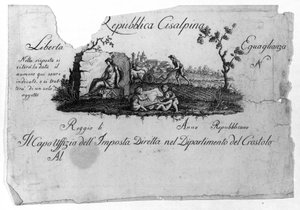 Repubblica Cisalpina
Libertà
Eguaglianza
Nella risposta si
citerà la data e
numero quì sopra
indicato, e si trat-
terà di un solo
oggetto
N
Reggio li
Anno Repubblicano
Il Capo Uffizio dell' Imposta Diretta nel Dipartimento del Crostolo
Al